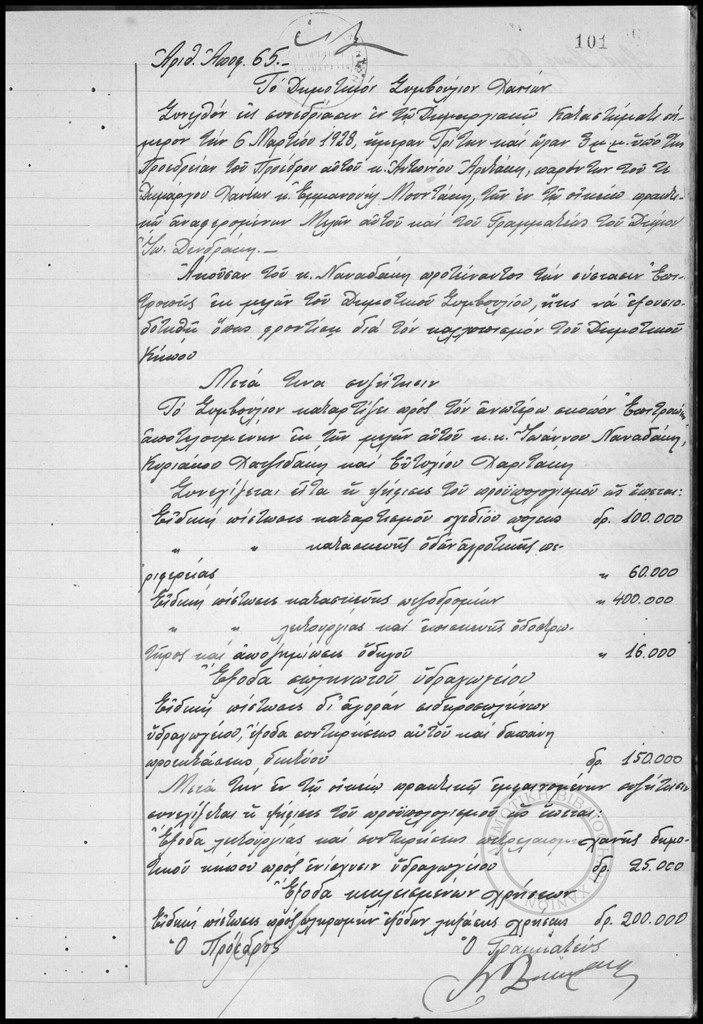 101
Ἀριθ. Ἀποφ. 65.-
Τό Δημοτικόν Συμβούλιον Χανίων
Συνελθόν εἰς συνεδρίασιν ἐν τῷ Δημαρχιακῷ Καταστήματι σή-
μερον τήν 6 Μαρτίου 1928, ἡμέραν Τρίτην καί ὥραν 3 μ.μ. ὑπό τήν
Προεδρείαν τοῦ Προέδρου αὐτοῦ κ. Ἀντωνίου παρόντων τοῦ τε
Δημάρχου Χανίων κ. Ἐμμανουήλ Μουντάκη, τῶν ἐν τῷ οἰκείῳ πρακτι-
κῷ ἀναφερομένων Μελῶν αὐτοῦ καί τοῦ Γραμματέως τοῦ Δήμου
Ἰω. Δενδράκη.-
Ἀκοῦσαν τοῦ κ. Ναναδάκη προτείναντος τήν σύστασιν Ἐπι-
τροπῆς ἐκ μελῶν τοῦ Δημοτικοῦ Συμβουλίου, ἥτις νά ἐξουσιο-
δοτηθῇ ὅπως φροντίσῃ διά τόν καλλωπισμόν τοῦ Δημοτικοῦ
Κήπου
Μετά τινα συζήτησιν
Τό Συμβούλιον καταρτίζει πρός τόν ἀνωτέρω σκοπόν Ἐπιτροπήν
ἀποτελουμένην ἐκ τῶν μελῶν αὐτοῦ κ.κ. Ἰωάννου Ναναδάκη,
Κυριάκου Χατζιδάκη καί Εὐτυχίου Χαριτάκη
Συνεχίζεται εἶτα ἡ ψήφισις τοῦ προϋπολογισμοῦ ὡς ἕπεται:
Εἰδική πίστωσις καταρτισμοῦ σχεδίου πόλεως δρ. 100.000
" " κατασκευῆς ὁδῶν ἀγροτικῆς πε-
ριφερείας " 60.000
Εἰδική πίστωσις κατασκευῆς πεζοδρομίων " 400.000
" " λειτουργίας καί ἐπισκευῆς ὁδοστρω-
τῆρος καί ἀποζημίωσις ὁδηγοῦ " 16.000
Ἔξοδα σωληνωτοῦ ὑδραγωγείου
Εἰδική πίστωσις δι' ἀγοράν σιδηροσωλήνων
ὑδραγωγείου, ἔξοδα συντηρήσεως αὐτοῦ καί δαπάνη
προεκτάσεως δικτύου δρ. 150.000
Μετά τήν ἐν τῷ οἰκείῳ πρακτικῷ ἐμφαινομένην συζήτησιν
συνεχίζεται ἡ ψήφισις τοῦ προϋπολογισμοῦ ὡς ἕπεται:
Ἔξοδα λειτουργίας καί συντηρήσεως πετρελαιομηχανῆς δημο-
τικοῦ κήπου πρός ἐνίσχυσιν ὑδραγωγείου δρ. 25.000
Ἔξοδα κεκλεισμένων χρήσεων
Εἰδική πίστωσις πρός πληρωμήν ἐξόδων ληξάσης χρήσεως δρ. 200.000
Ὁ Πρόεδρος Ὁ Γραμματεύς
ΔΗΜΟΤΙΚΗ ΒΙΒΛΙΟΘΗΚΗ ΧΑΝΙΩΝ